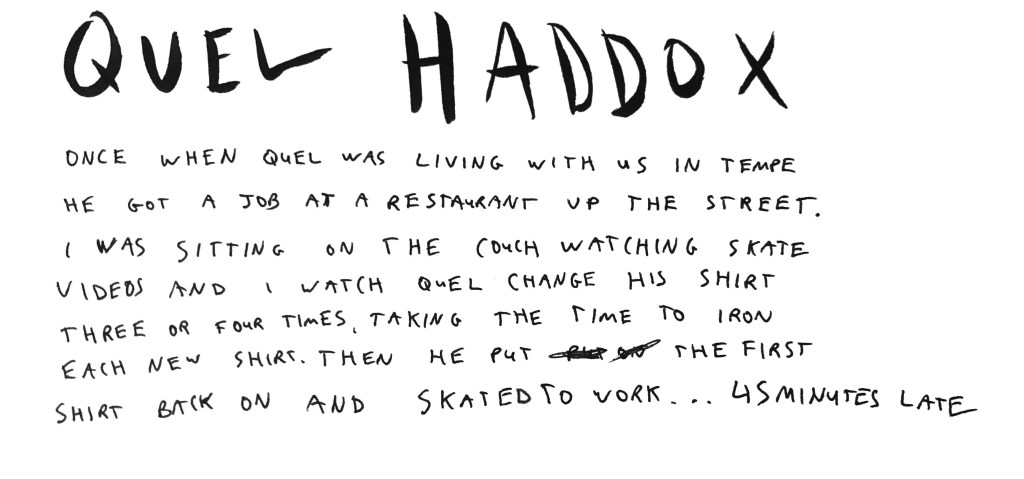 QUEL HADDOX
ONCE WHEN QUEL WAS LIVING WITH US IN TEMPE
HE GOT A JOB AT A RESTAURANT UP THE STREET.
I WAS SITTING ON THE COUCH WATCHING SKATE
VIDEOS AND I WATCH QUEL CHANGE HIS SHIRT
THREE OR FOUR TIMES, TAKING THE TIME TO IRON
EACH NEW SHIRT. THEN HE PUT THE FIRST
SHIRT BACK ON AND SKATED TO WORK... 45 MINUTES LATE